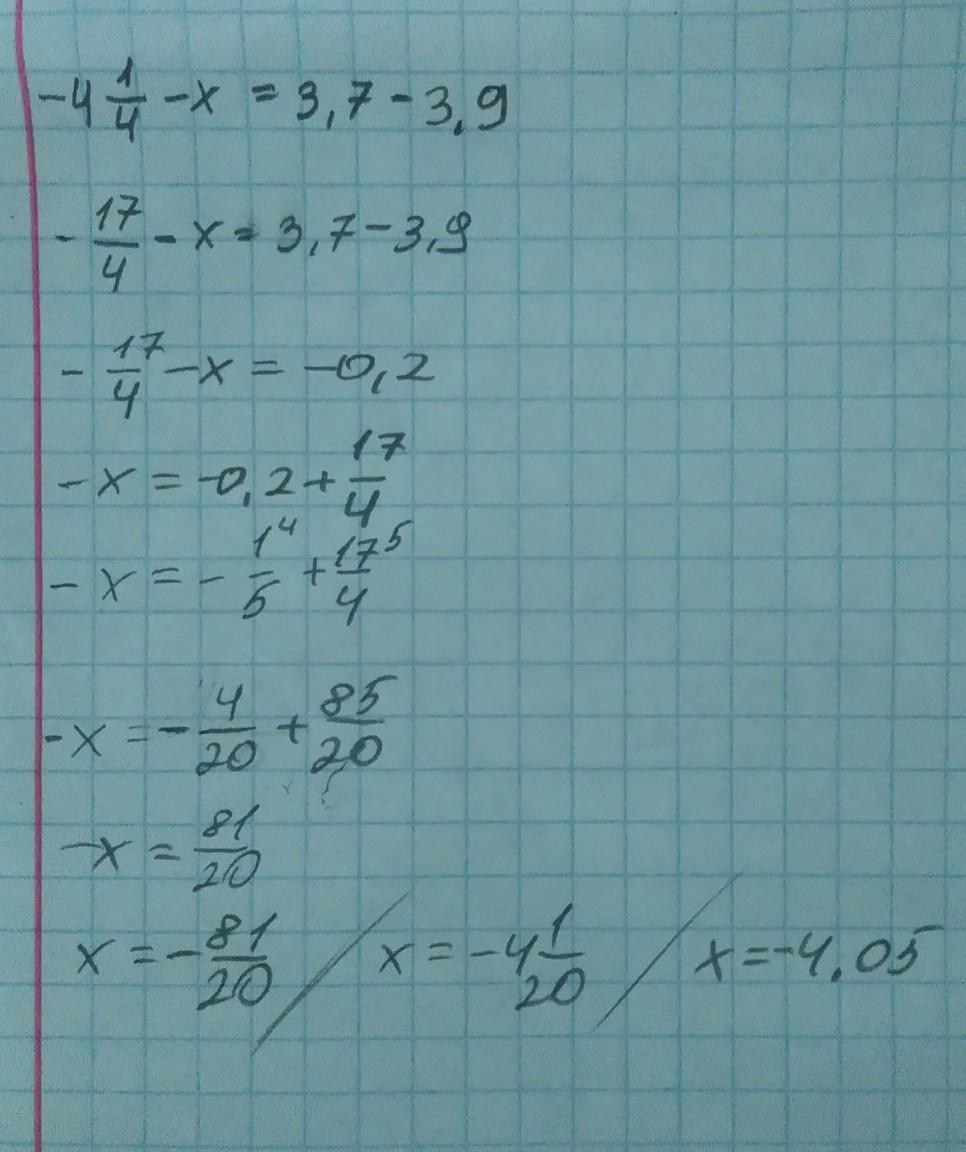 -4 1/4 - x = 3,7 - 3,9
- 17/4 - x = 3,7 - 3,9
- 17/4 - x = -0,2
-x = -0,2 + 17/4
-x = - 1/5 ⁴ + 17/4 ⁵
-x = - 4/20 + 85/20
-x = 81/20
x = - 81/20 / x = -4 1/20 / x = -4.05